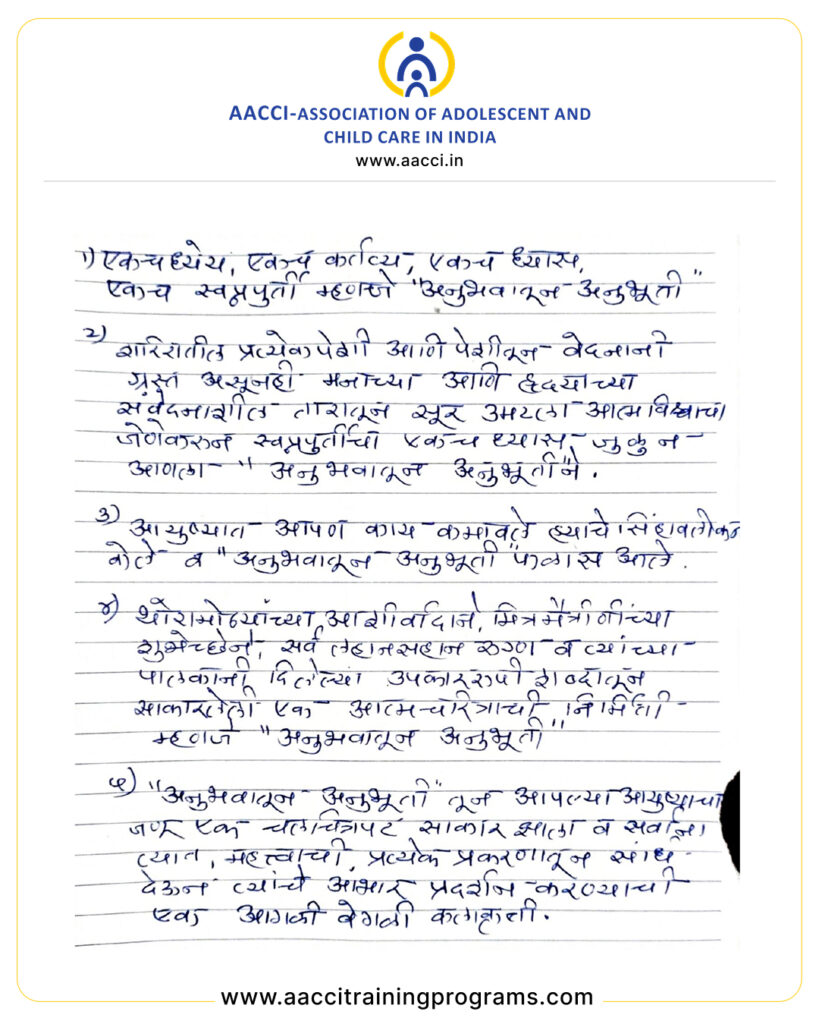 AACCI-ASSOCIATION OF ADOLESCENT AND
CHILD CARE IN INDIA
www.aacci.in
१) एकच ध्येय, एकच कर्तव्य, एकच ध्यास,
एकच स्वप्नपुर्ती म्हणजे "अनुभवातून अनुभूती"
२)
शरिरातील प्रत्येक पेशी आणि पेशीतून वेदनानी
ग्रस्त असूनही मनाच्या आणि हृदयाच्या
संवेदनाशील तारातून सूर उमटला आत्मविश्वाचा
जेणेकरुन स्वप्नपुर्तीचा एकच ध्यास जुळुन
आणला "अनुभवातून अनुभूतीने".
३)
आयुष्यात आपण काय कमावले ह्याचे सिंहावलोकन
केले व "अनुभवातून अनुभूती" फळास आले.
४) थोरामोठ्यांच्या आशीर्वादाने, मित्रमैत्रीणींच्या
शुभेच्छेने, सर्व लहानसहान रुग्ण व त्यांच्या
पालकांनी दिलेल्या उपकाररुपी शब्दातून
साकारलेली एक आत्मचरित्राची निर्मिती
म्हणजे "अनुभवातून अनुभूती"
५) "अनुभवातून अनुभूती" तून आपल्या आयुष्याचा
जणू एक चलचित्रपट साकार झाला व सर्वांना
त्यात, महत्त्वाची, प्रत्येक प्रकरणातून संधी
देऊन त्यांचे आभार प्रदर्शन करण्याची
एक आगळी वेगळी कलाकृती.
www.aaccitrainingprograms.com